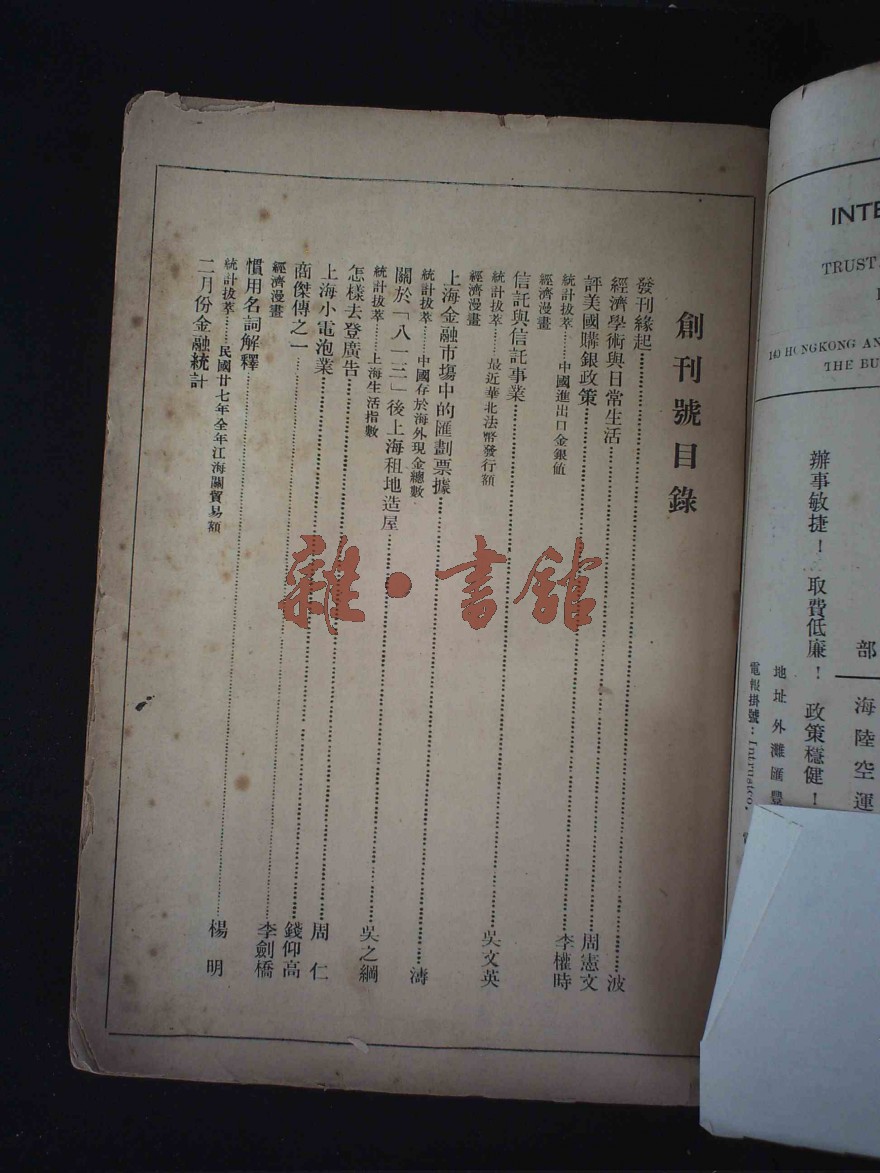 INTE
TRUST
140 HONGKONG AN
THE BU
部
海陸空運
辦事敏捷！取費低廉！政策穩健！
地址 外灘匯豐
電報掛號：Intrustco.
創刊號目錄
發刊緣起……波
經濟學術與日常生活……周憲文
評美國購銀政策……李權時
統計拔萃……中國進出口金銀值
經濟漫畫
信託與信託事業……吳文英
統計拔萃……最近華北法幣發行額
經濟漫畫
上海金融市場中的匯劃票據……濤
統計拔萃……中國存於海外現金總數
關於「八一三」後上海租地造屋……吳之綱
統計拔萃……上海生活指數
怎樣去登廣告……周仁
上海小電泡業……錢仰高
商傑傳之一……李劍橋
經濟漫畫
慣用名詞解釋……楊明
統計拔萃……民國廿七年全年江海關貿易額
二月份金融統計
雜·書館